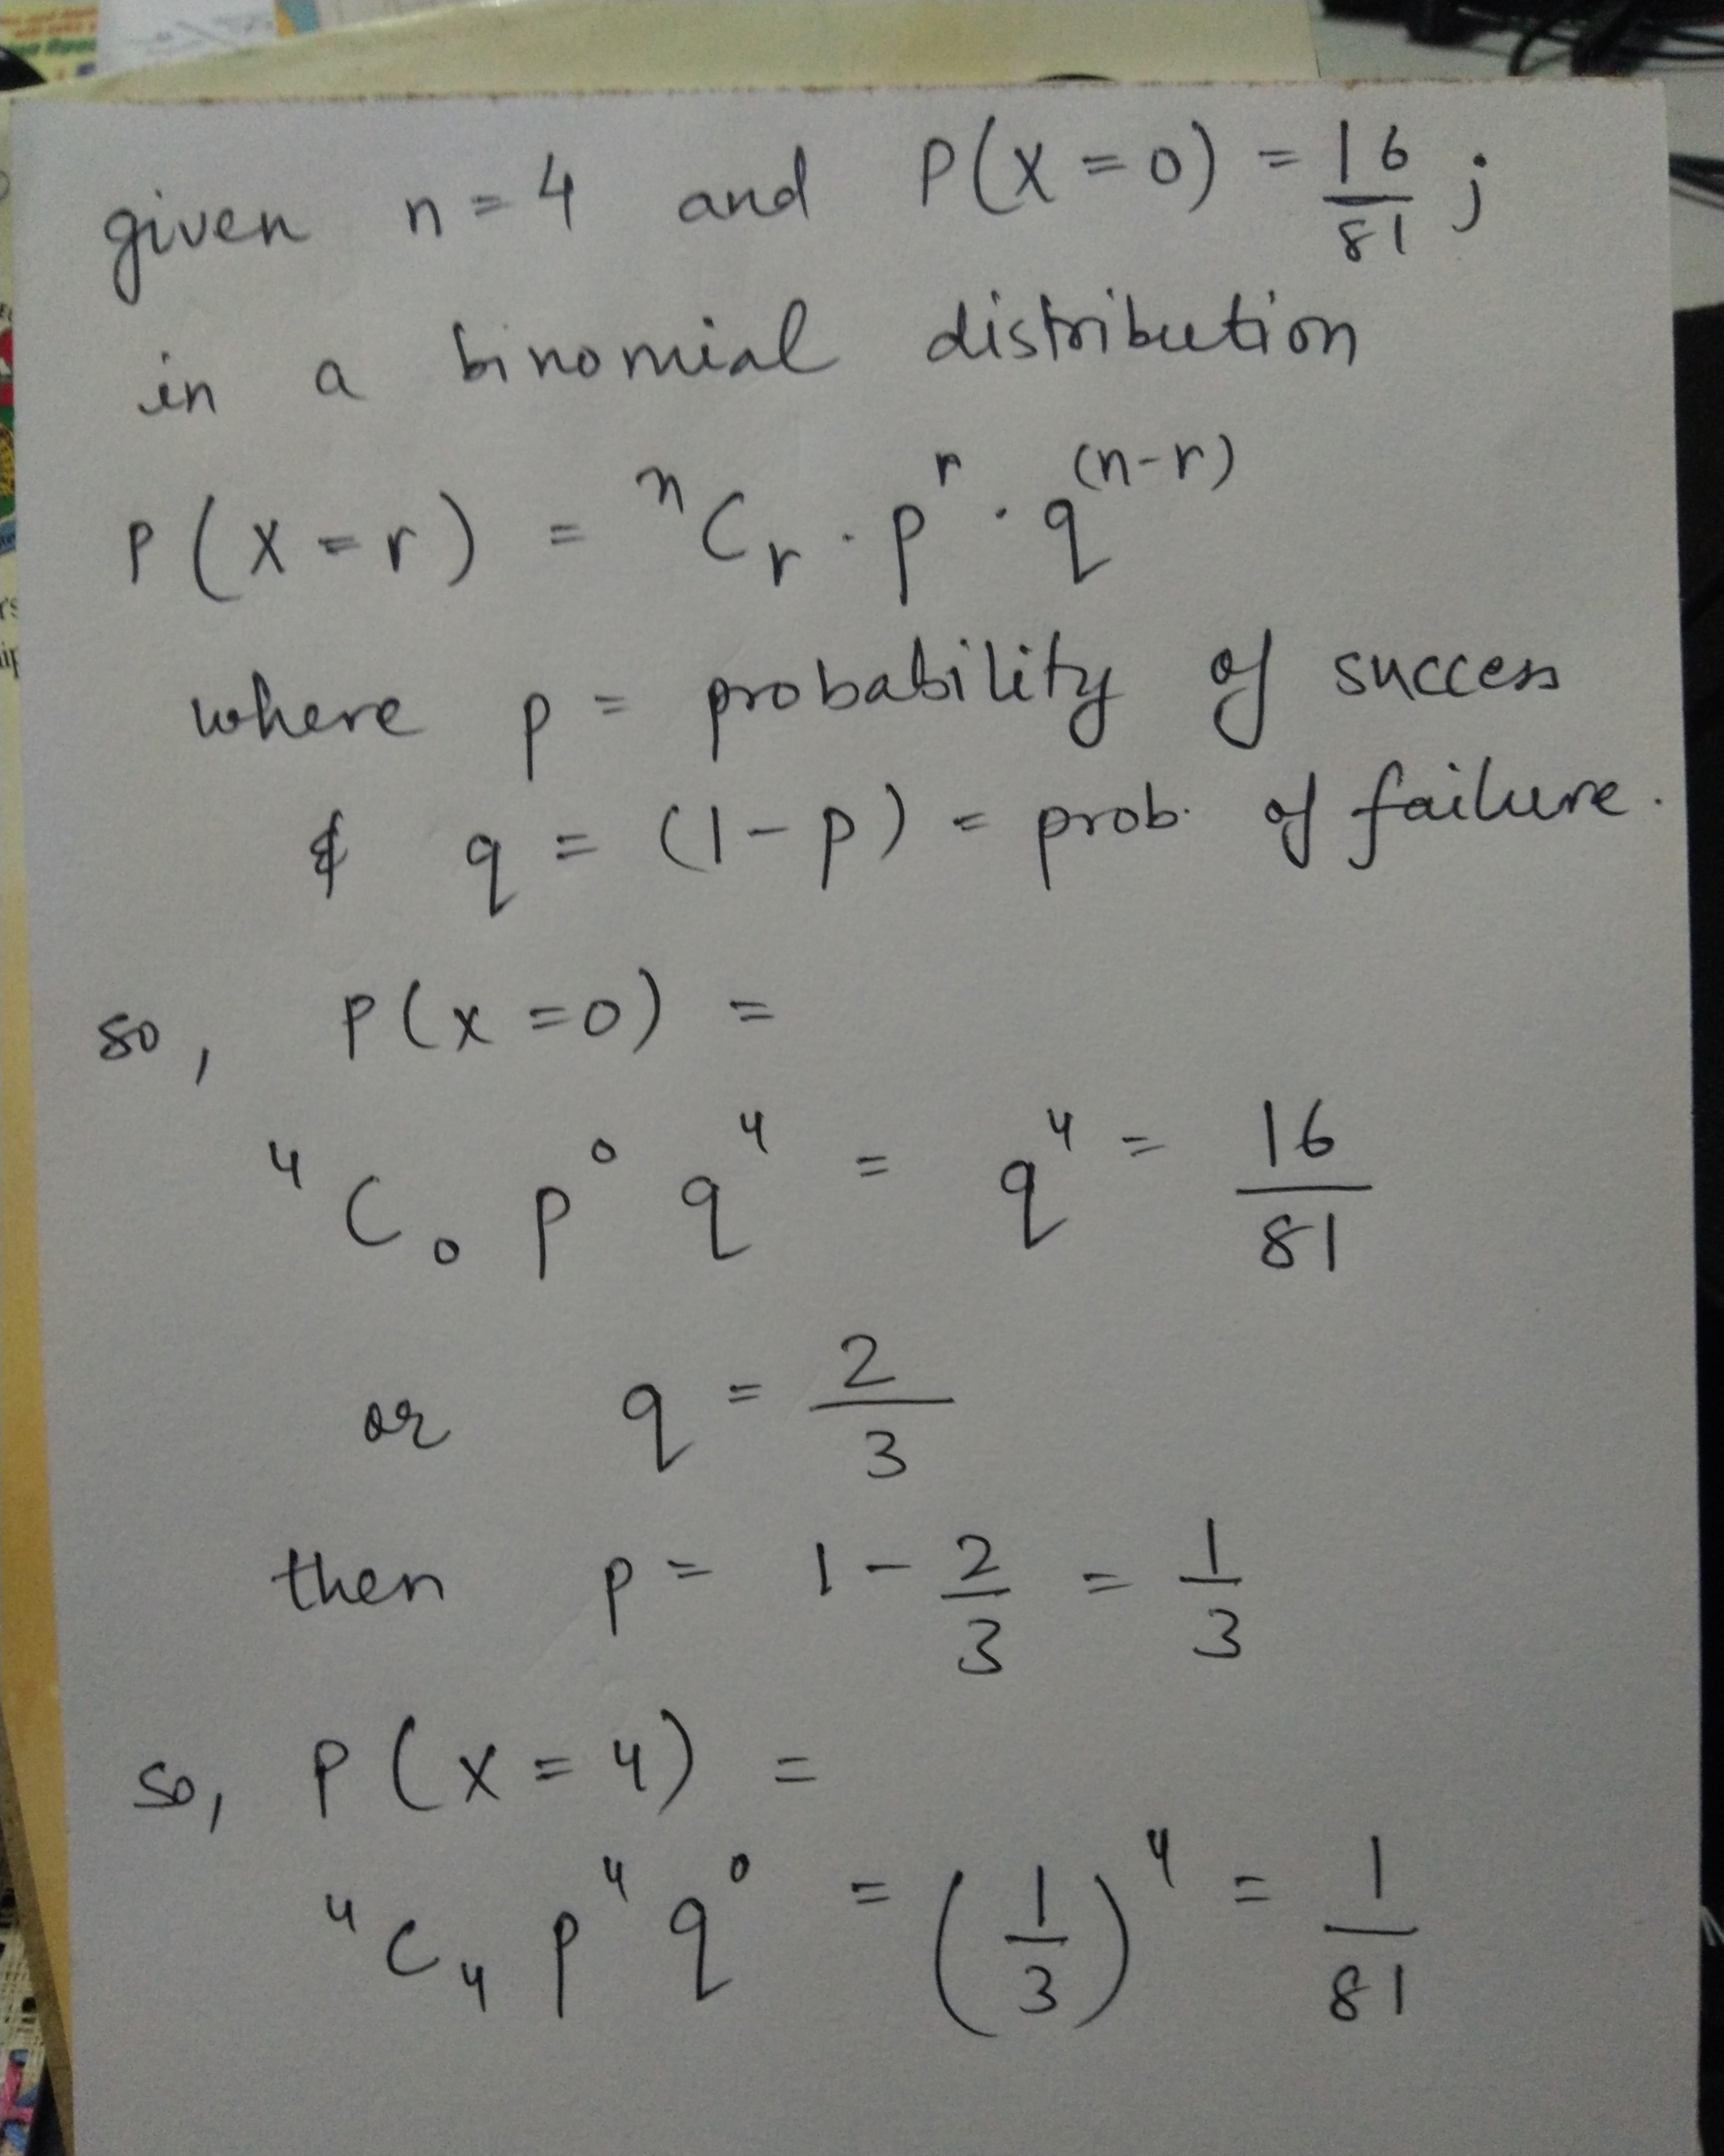 given n = 4 and P(X = 0) = 16/81 ;
in a binomial distribution
P(X = r) = ⁿCᵣ . pʳ . q⁽ⁿ⁻ʳ⁾
where p = probability of success
& q = (1 - p) = prob. of failure.
so, P(x = 0) =
⁴C₀ p⁰ q⁴ = q⁴ = 16/81
or q = 2/3
then p = 1 - 2/3 = 1/3
so, P(X = 4) =
⁴C₄ p⁴ q⁰ = (1/3)⁴ = 1/81